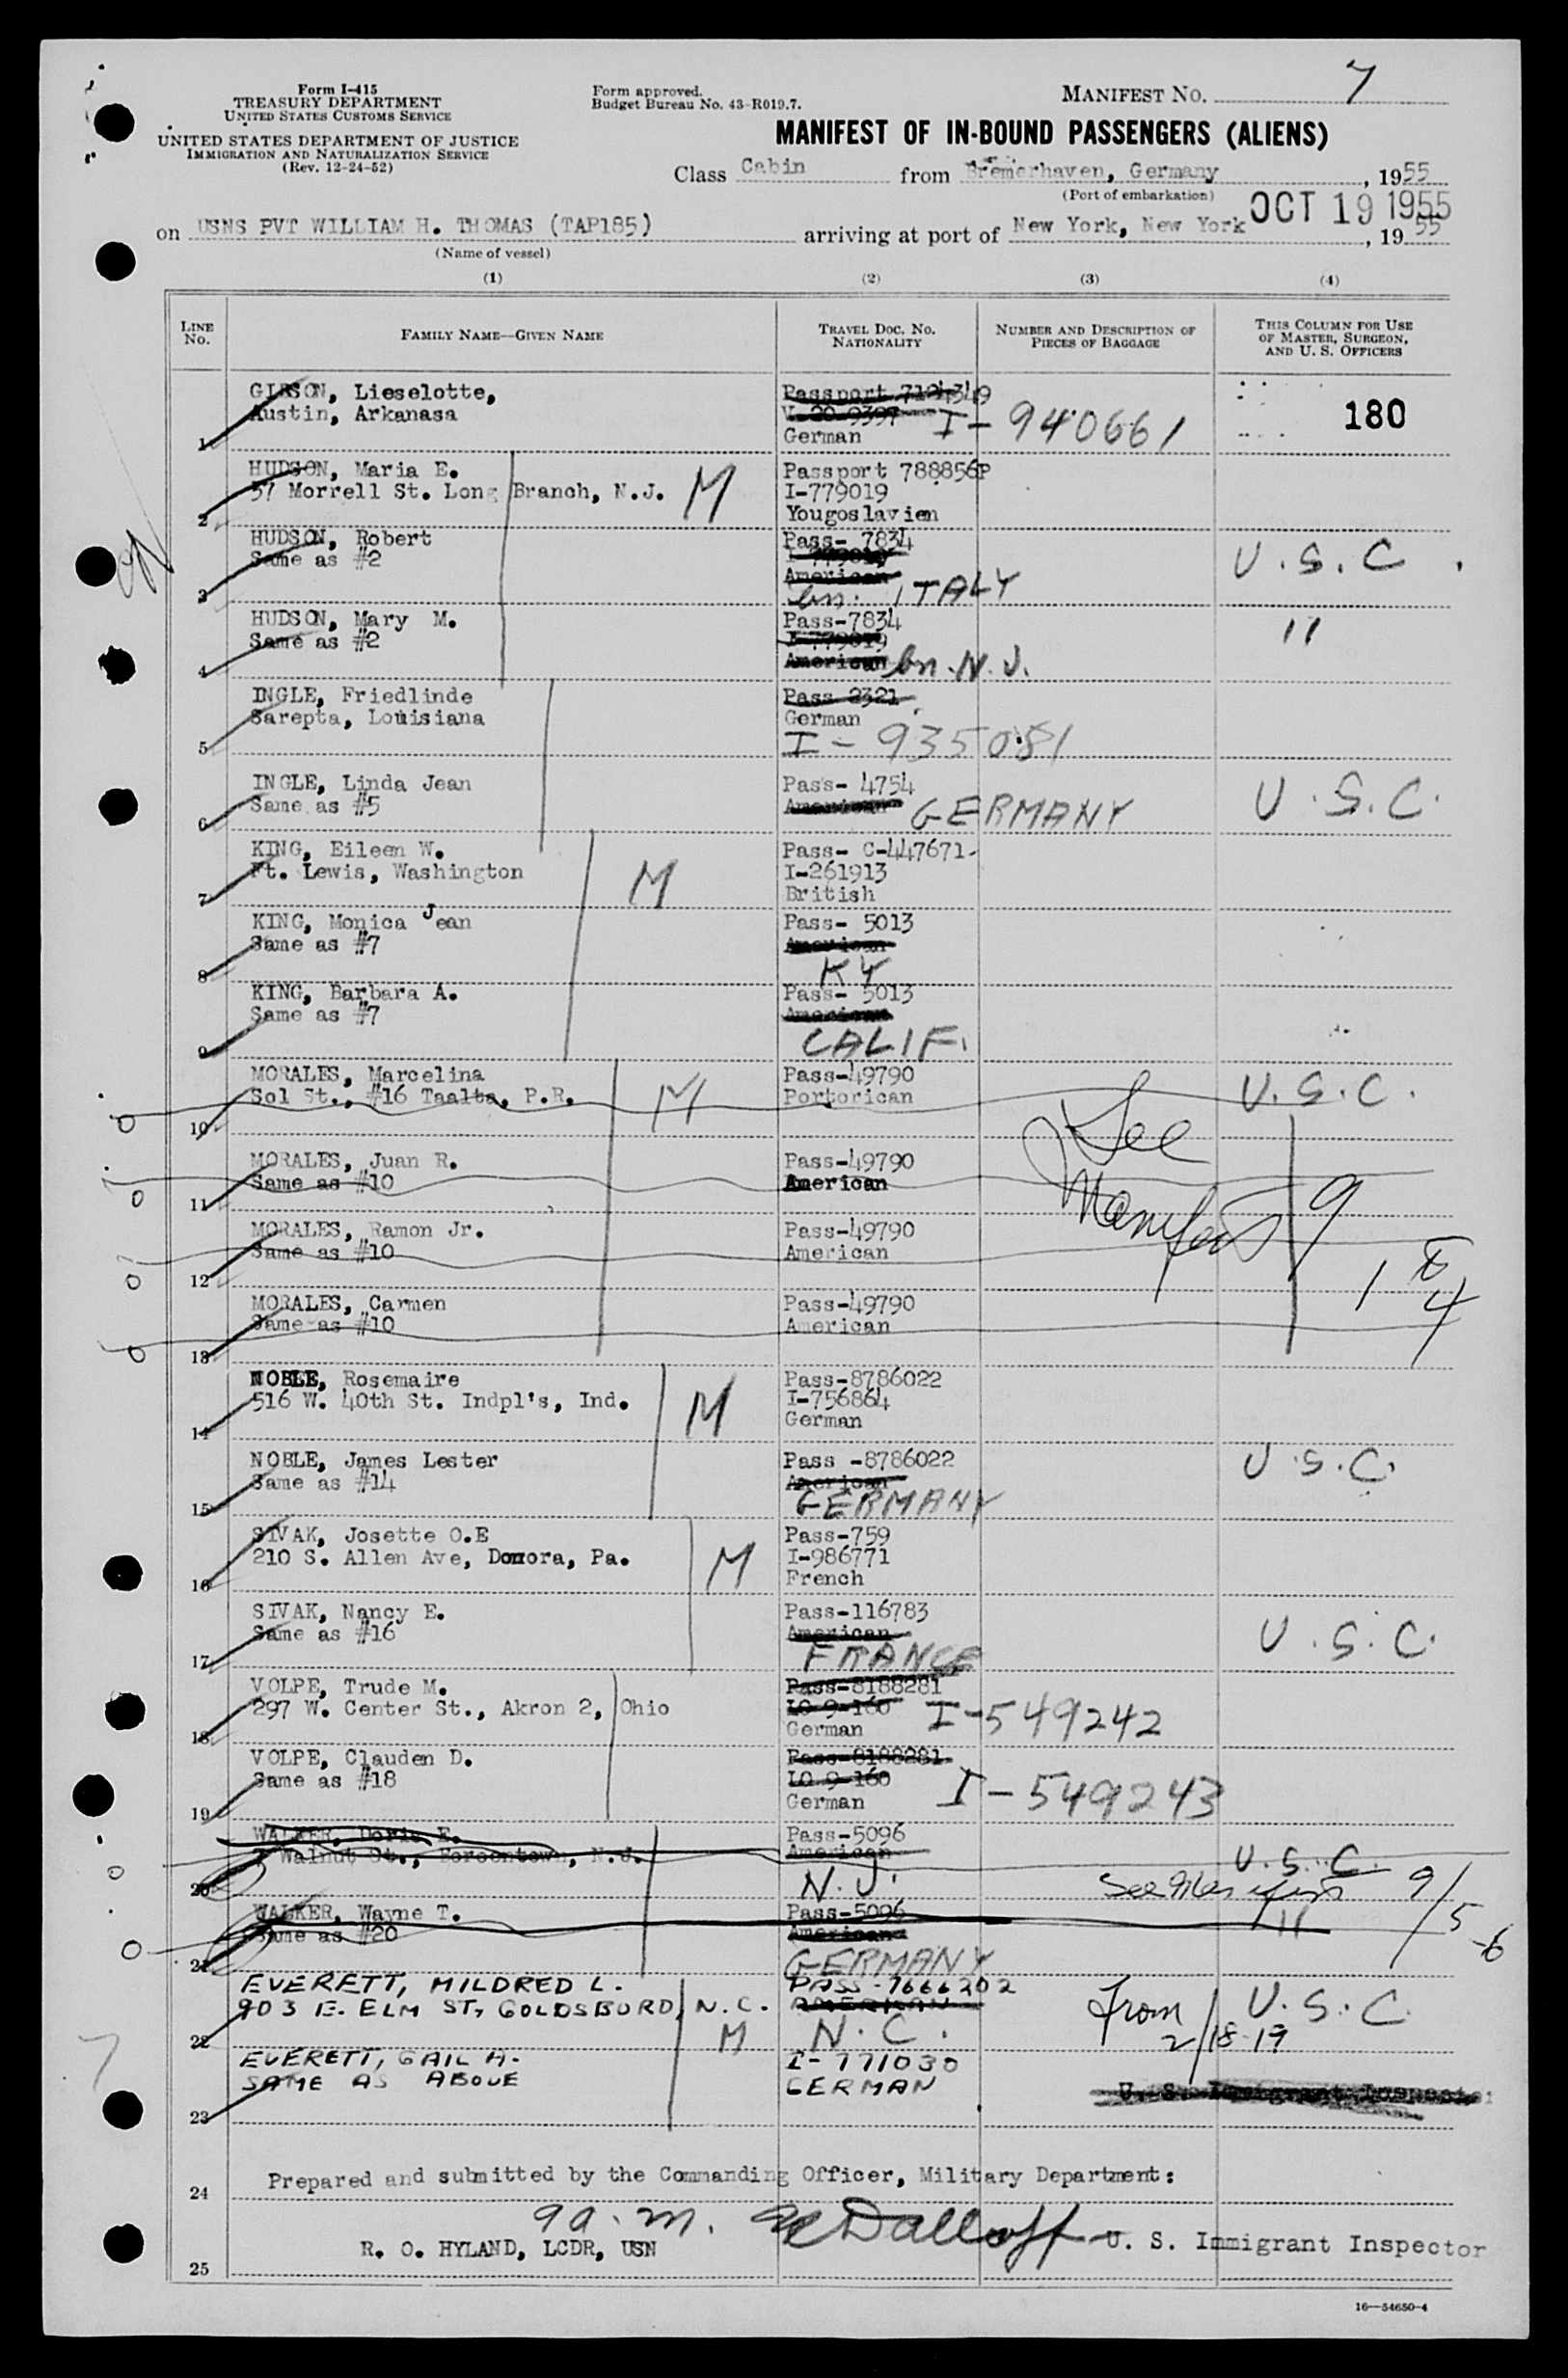 Form I-415
TREASURY DEPARTMENT
UNITED STATES CUSTOMS SERVICE
UNITED STATES DEPARTMENT OF JUSTICE
IMMIGRATION AND NATURALIZATION SERVICE
(Rev. 12-24-52)
Form approved.
Budget Bureau No. 43-R019.7.
MANIFEST NO. 7
MANIFEST OF IN-BOUND PASSENGERS (ALIENS)
Class Cabin from Bremerhaven, Germany, 1955
(Port of embarkation)
OCT 19 1955
on USNS PVT WILLIAM H. THOMAS (TAP185) arriving at port of New York, New York, 1955
(Name of vessel)
(1) (2) (3) (4)
LINE No.
FAMILY NAME—GIVEN NAME
TRAVEL DOC. NO. NATIONALITY
NUMBER AND DESCRIPTION OF PIECES OF BAGGAGE
THIS COLUMN FOR USE OF MASTER, SURGEON, AND U. S. OFFICERS
GIBSON, Lieselotte, Passport 7194349
Austin, Arkanasa V-20-9397 I-940661 180
1 German
HUDSON, Maria E. Passport 788856P
57 Morrell St. Long Branch, N.J. M I-779019
2 Yougoslavien
HUDSON, Robert Pass- 7834
Same as #2 I-779019 U.S.C.
3 American bn. ITALY
HUDSON, Mary M. Pass-7834 "
Same as #2 I-779019
4 American bn. N.J.
INGLE, Friedlinde Pass 2321
Sarepta, Louisiana German
5 I-935081
INGLE, Linda Jean Pass- 4754
Same as #5 American GERMANY U.S.C.
6
KING, Eileen W. Pass- C-447671
Ft. Lewis, Washington M I-261913
7 British
KING, Monica Jean Pass- 5013
Same as #7 American
8 KY
KING, Barbara A. Pass- 5013
Same as #7 American
9 CALIF.
MORALES, Marcelina Pass-49790
Sol St., #16 Taalta, P.R. M Portorican U.S.C.
10 See
MORALES, Juan R. Pass-49790
Same as #10 American
11 Manifest 9
MORALES, Ramon Jr. Pass-49790
Same as #10 American
12 1 to 4
MORALES, Carmen Pass-49790
Same as #10 American
13
NOBLE, Rosemaire Pass-8786022
516 W. 40th St. Indpl's, Ind. M I-756864
14 German
NOBLE, James Lester Pass -8786022
Same as #14 American U.S.C.
15 GERMANY
SIVAK, Josette O.E Pass-759
210 S. Allen Ave, Donora, Pa. M I-986771
16 French
SIVAK, Nancy E. Pass-116783
Same as #16 American U.S.C.
17 FRANCE
VOLPE, Trude M. Pass-8188281
297 W. Center St., Akron 2, Ohio LO 9-160 I-549242
18 German
VOLPE, Clauden D. Pass-8188281
Same as #18 LO 9-160
19 German I-549243
WALKER, Doris E. Pass-5096
Walnut St., N.J. American U.S.C.
20 N.J. See Manifest 9/5-6
WALKER, Wayne T. Pass-5096 11
Same as #20 American
21 GERMANY
EVERETT, MILDRED L. PASS-7666202
903 E. ELM ST, GOLDSBORO, N.C. AMERICAN From U.S.C.
22 M N.C. 2/18-19
EVERETT, GAIL H. I-771030
SAME AS ABOVE GERMAN
U. S. Immigrant Inspector
23
7
Prepared and submitted by the Commanding Officer, Military Department:
24
R. O. HYLAND, LCDR, USN U. S. Immigrant Inspector
25
16—54650-4